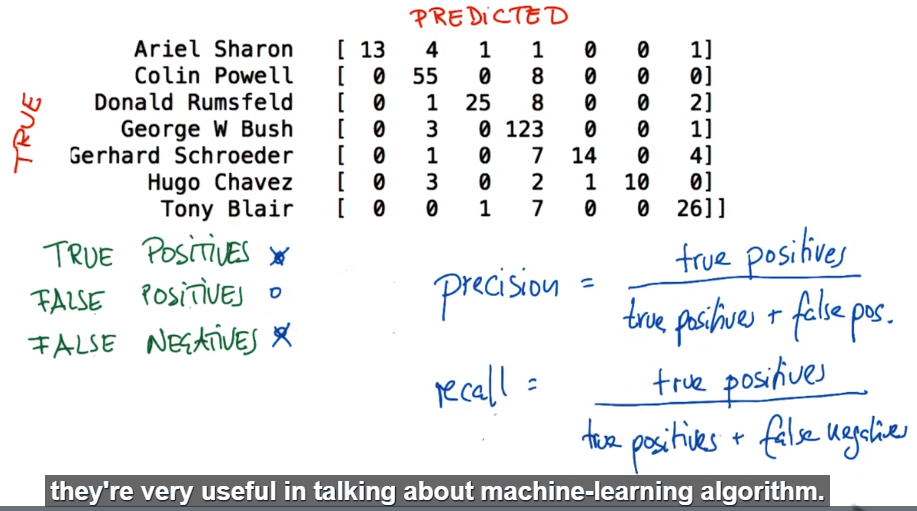 PREDICTED
TRUE
Ariel Sharon [ 13 4 1 1 0 0 1]
Colin Powell [ 0 55 0 8 0 0 0]
Donald Rumsfeld [ 0 1 25 8 0 0 2]
George W Bush [ 0 3 0 123 0 0 1]
Gerhard Schroeder [ 0 1 0 7 14 0 4]
Hugo Chavez [ 0 3 0 2 1 10 0]
Tony Blair [ 0 0 1 7 0 0 26]]
TRUE POSITIVES
FALSE POSITIVES 0
FALSE NEGATIVES
precision = true positives
true positives + false pos.
recall = true positives
true positives + false negatives
they're very useful in talking about machine-learning algorithm.